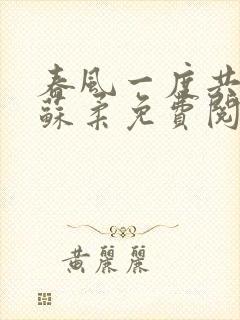 春風一度共
蘇柔免費閱
黃麗麗